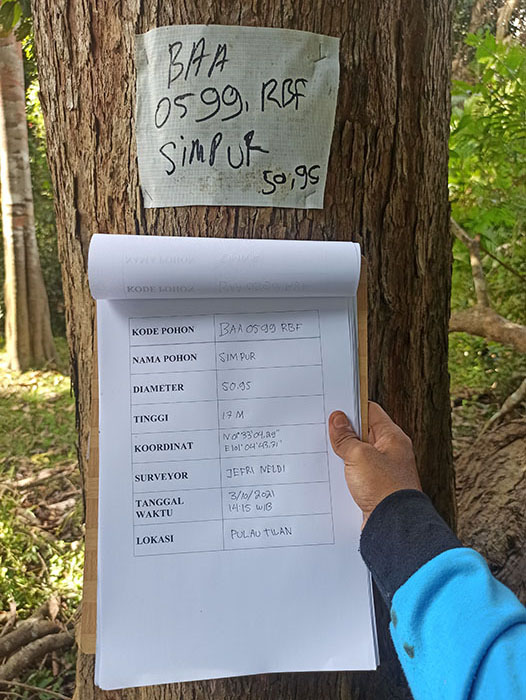 BAA
0599. RBF
SIMPUR
50,95
KODE POHON BAA 0599 RBF
NAMA POHON SIMPUR
DIAMETER 50.95
TINGGI 17 M
KOORDINAT N 0° 33' 09.29"
E 101° 04' 43.71"
SURVEYOR JEFRI NELDI
TANGGAL 3/10/2021
WAKTU 14:15 WIB
LOKASI PULAU TILAN